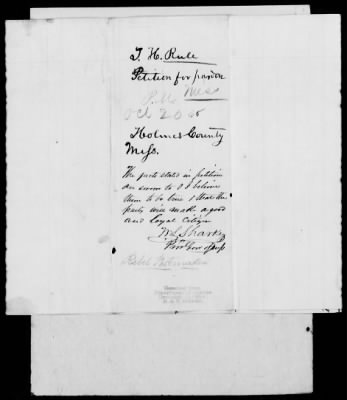 T. H. Rule
Petition for pardon
P.M. Miss
Oct 20 65
Holmes County
Miss.
The facts stated in petition
are sworn to & I believe
them to be true & that the
party will make a good
and Loyal Citizen
W L Sharkey
Prov Gov of Miss
Rebel Postmaster